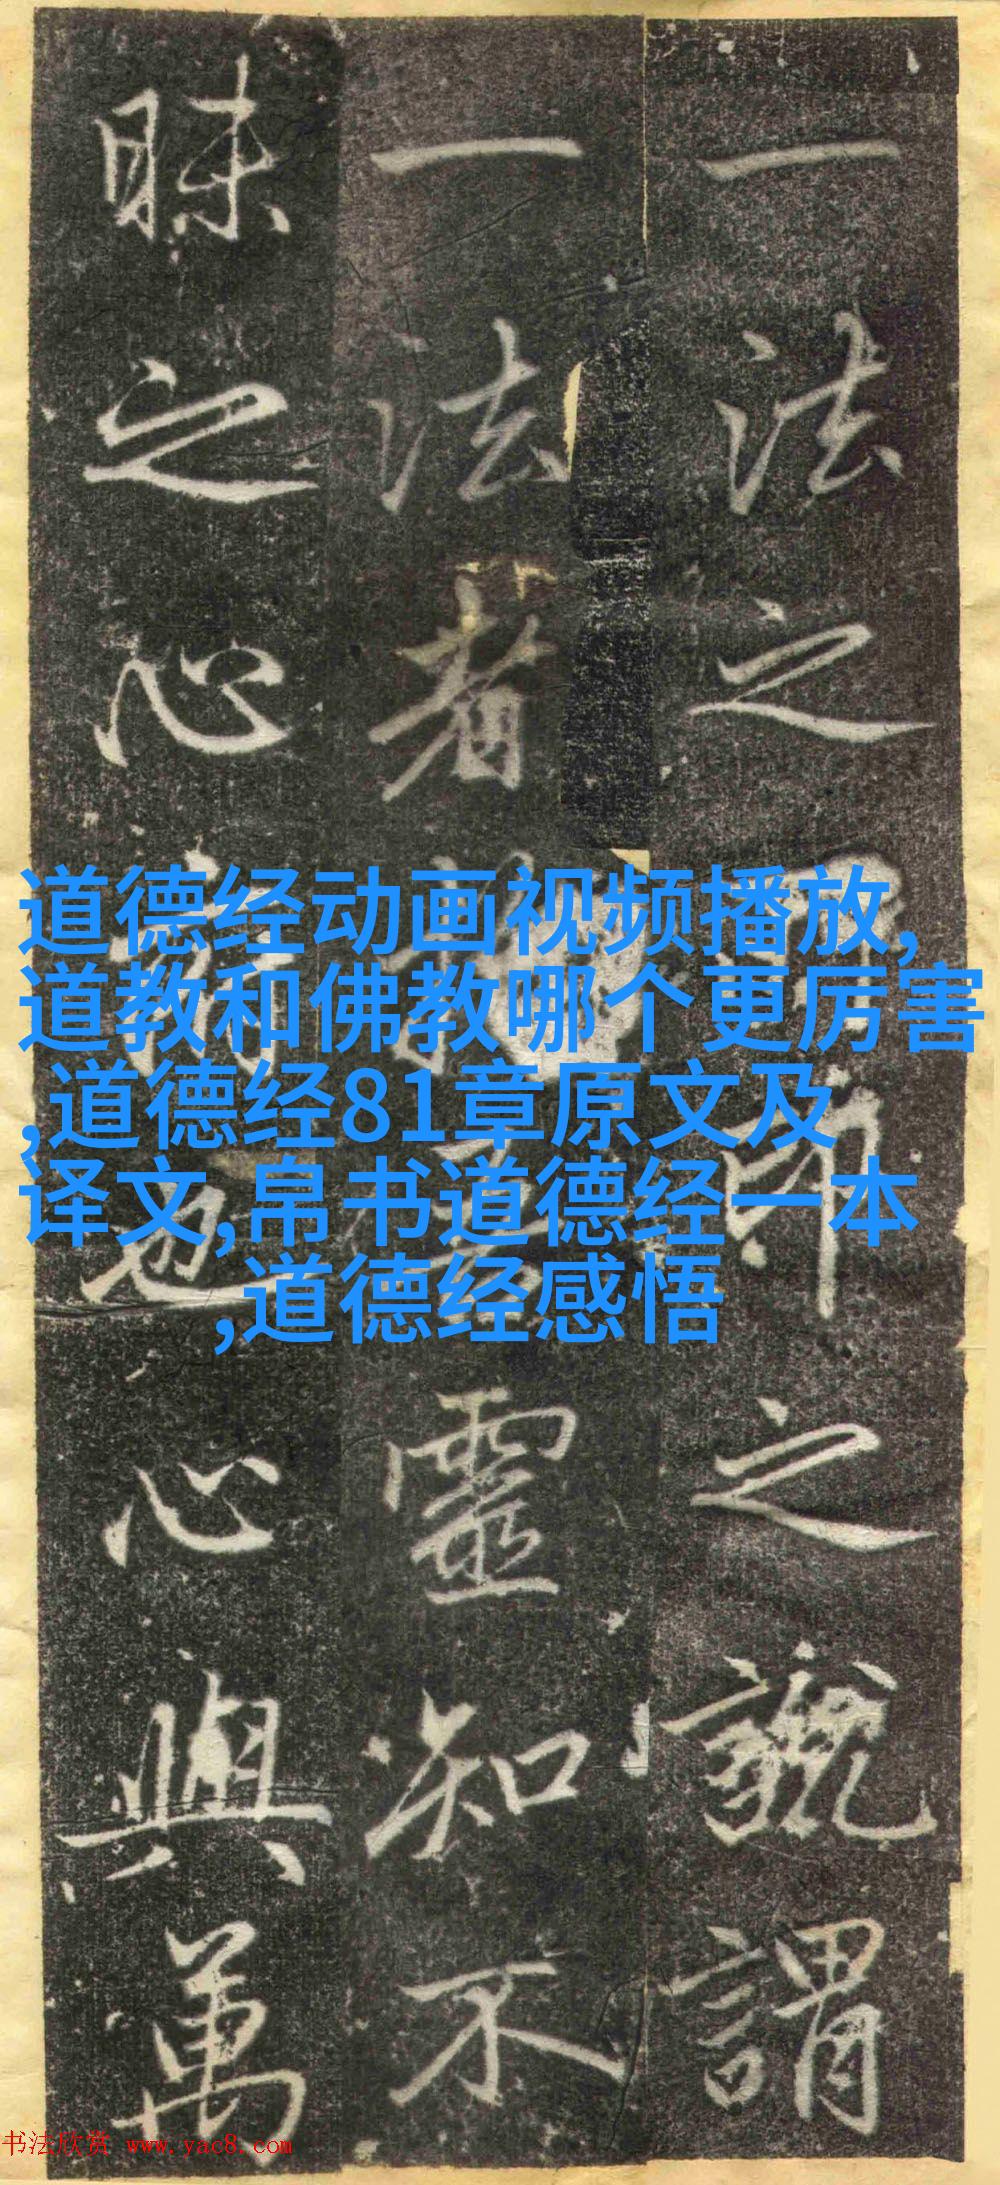 一法之之謂
一法者靈知不
昧之心也心與萬
道德经动画视频播放,
道教和佛教哪个更厉害
,道德经81章原文及
译文,帛书道德经一本
,道德经感悟
书法欣赏 www.yac8.com